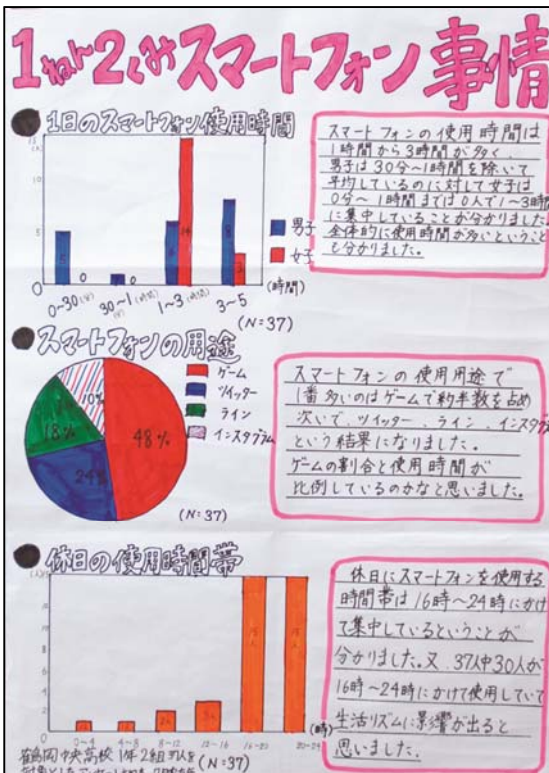 1ねん2くみスマートフォン事情
1日のスマートフォン使用時間
15
(人)
10
5
0
5
0
1
0
6
14
8
3
男子
女子
0~30(分)
30~1(時間)
(分)
1~3(時間)
3~5
(時間)
(N=37)
スマートフォンの使用時間は
1時間から3時間が多く、
男子は30分~1時間を除いて
平均しているのに対して女子は
0分~1時間までは0人で1~3時間
に集中していることが分かりました。
全体的に使用時間が多いということ
も分かりました。
スマートフォンの用途
ゲーム
ツイッター
ライン
インスタグラム
10%
18%
48%
24%
(N=37)
スマートフォンの使用用途で
1番多いのはゲームで約半数を占め
次いで、ツイッター、ライン、インスタグラム
という結果になりました。
ゲームの割合と使用時間が
比例しているのかなと思いました。
休日の使用時間帯
8
6
4
2
0
0~4
4~8
8~12
12~16
16~20
20~24
(時)
(N=37)
休日にスマートフォンを使用する
時間帯は16時~24時にかけ
て集中しているということが
分かりました。又、37人中30人が
16時~24時にかけて使用していて
生活リズムに影響が出ると
思いました。
鶴岡中央高校 1年2組37人を